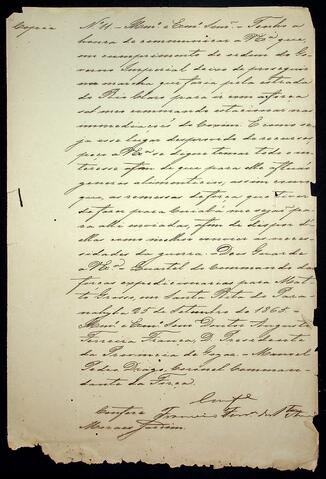 Copia
N. 11 - Illmo e Exmo Senr - Tenho a
honra de communicar a VExa que,
em cumprimento de ordens do Go-
verno Imperial, deixo de proseguir
na marcha que fazia pela estrada
do Rio Claro para vir a força
sob meu commando estacionar nas
immediações do Coxim. E como se-
ja esse lugar desprovido de recursos
peço a VExa se digne tomar todo in-
teresse afim de que para elle affluão
generos alimenticios, assim como
que, as remessas de força que tiver
de fazer para Cuiabá me sejão pa-
ra alli enviadas, afim de dispor d'-
ellas como melhor convier as neces-
sidades da guerra. Deos Guarde
a VExa Quartel do Commando das
forças expedicionarias para Mat-
to Grosso, em Santa Rita do Para-
nahyba 25 de Setembro de 1865.
Illmo e Exmo Senr Doutor Augusto
Ferreira França, D. Presidente
da Provincia de Goyaz - Manoel
Pedro Drago, Coronel Comman-
dante da Força.
Confe
Moraes Jardim